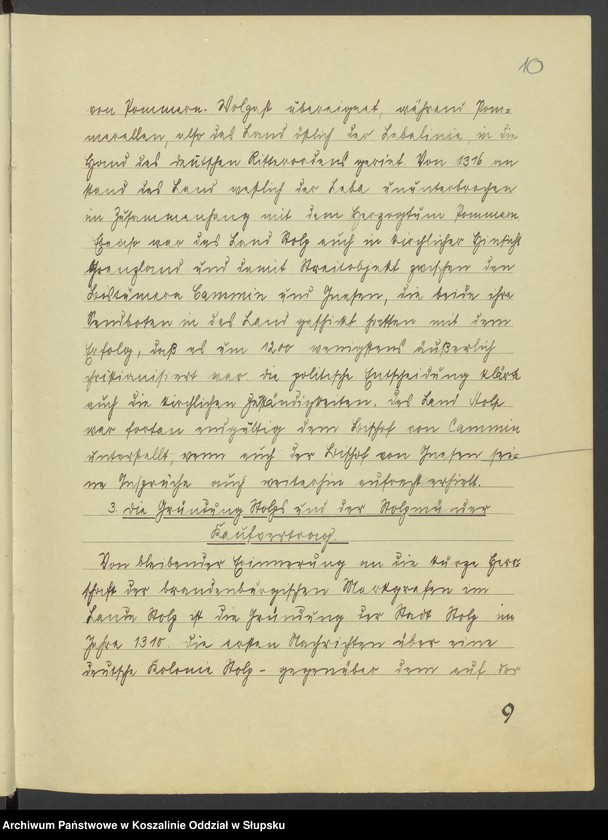 10
von Pommern-Wolgast übereignet, während Pom=
merellen, also das Land östlich der Lebalinie, in die
Hand des deutschen Ritterordens geriet. Von 1316 an
stand das Land westlich der Leba ununterbrochen
im Zusammenhang mit dem Herzogtum Pommern.
Ebenso war das Land Stolp auch in kirchlicher Hinsicht
Grenzland und damit Streitobjekt zwischen den
Bistümern Cammin und Gnesen, die beide ihre
Sendboten in das Land geschickt hatten mit dem
Erfolg, daß es um 1200 wenigstens äußerlich
christianisiert war. die politische Entscheidung klärte
auch die kirchlichen Zuständigkeiten. das Land Stolp
war fortan endgültig dem Bischof von Cammin
unterstellt, wenn auch der Bischof von Gnesen sei=
ne Ansprüche auch weiterhin aufrecht erhielt.
3. die Gründung Stolps und der Stolpmünder
Kaufvertrag.
Von bleibender Erinnerung an die kurze Herr=
schaft der brandenburgischen Markgrafen im
Lande Stolp ist die Gründung der Stadt Stolp im
Jahre 1310. die ersten Nachrichten über eine
deutsche Kolonie Stolp - gegenüber dem auf der
9
Archiwum Państwowe w Koszalinie Oddział w Słupsku